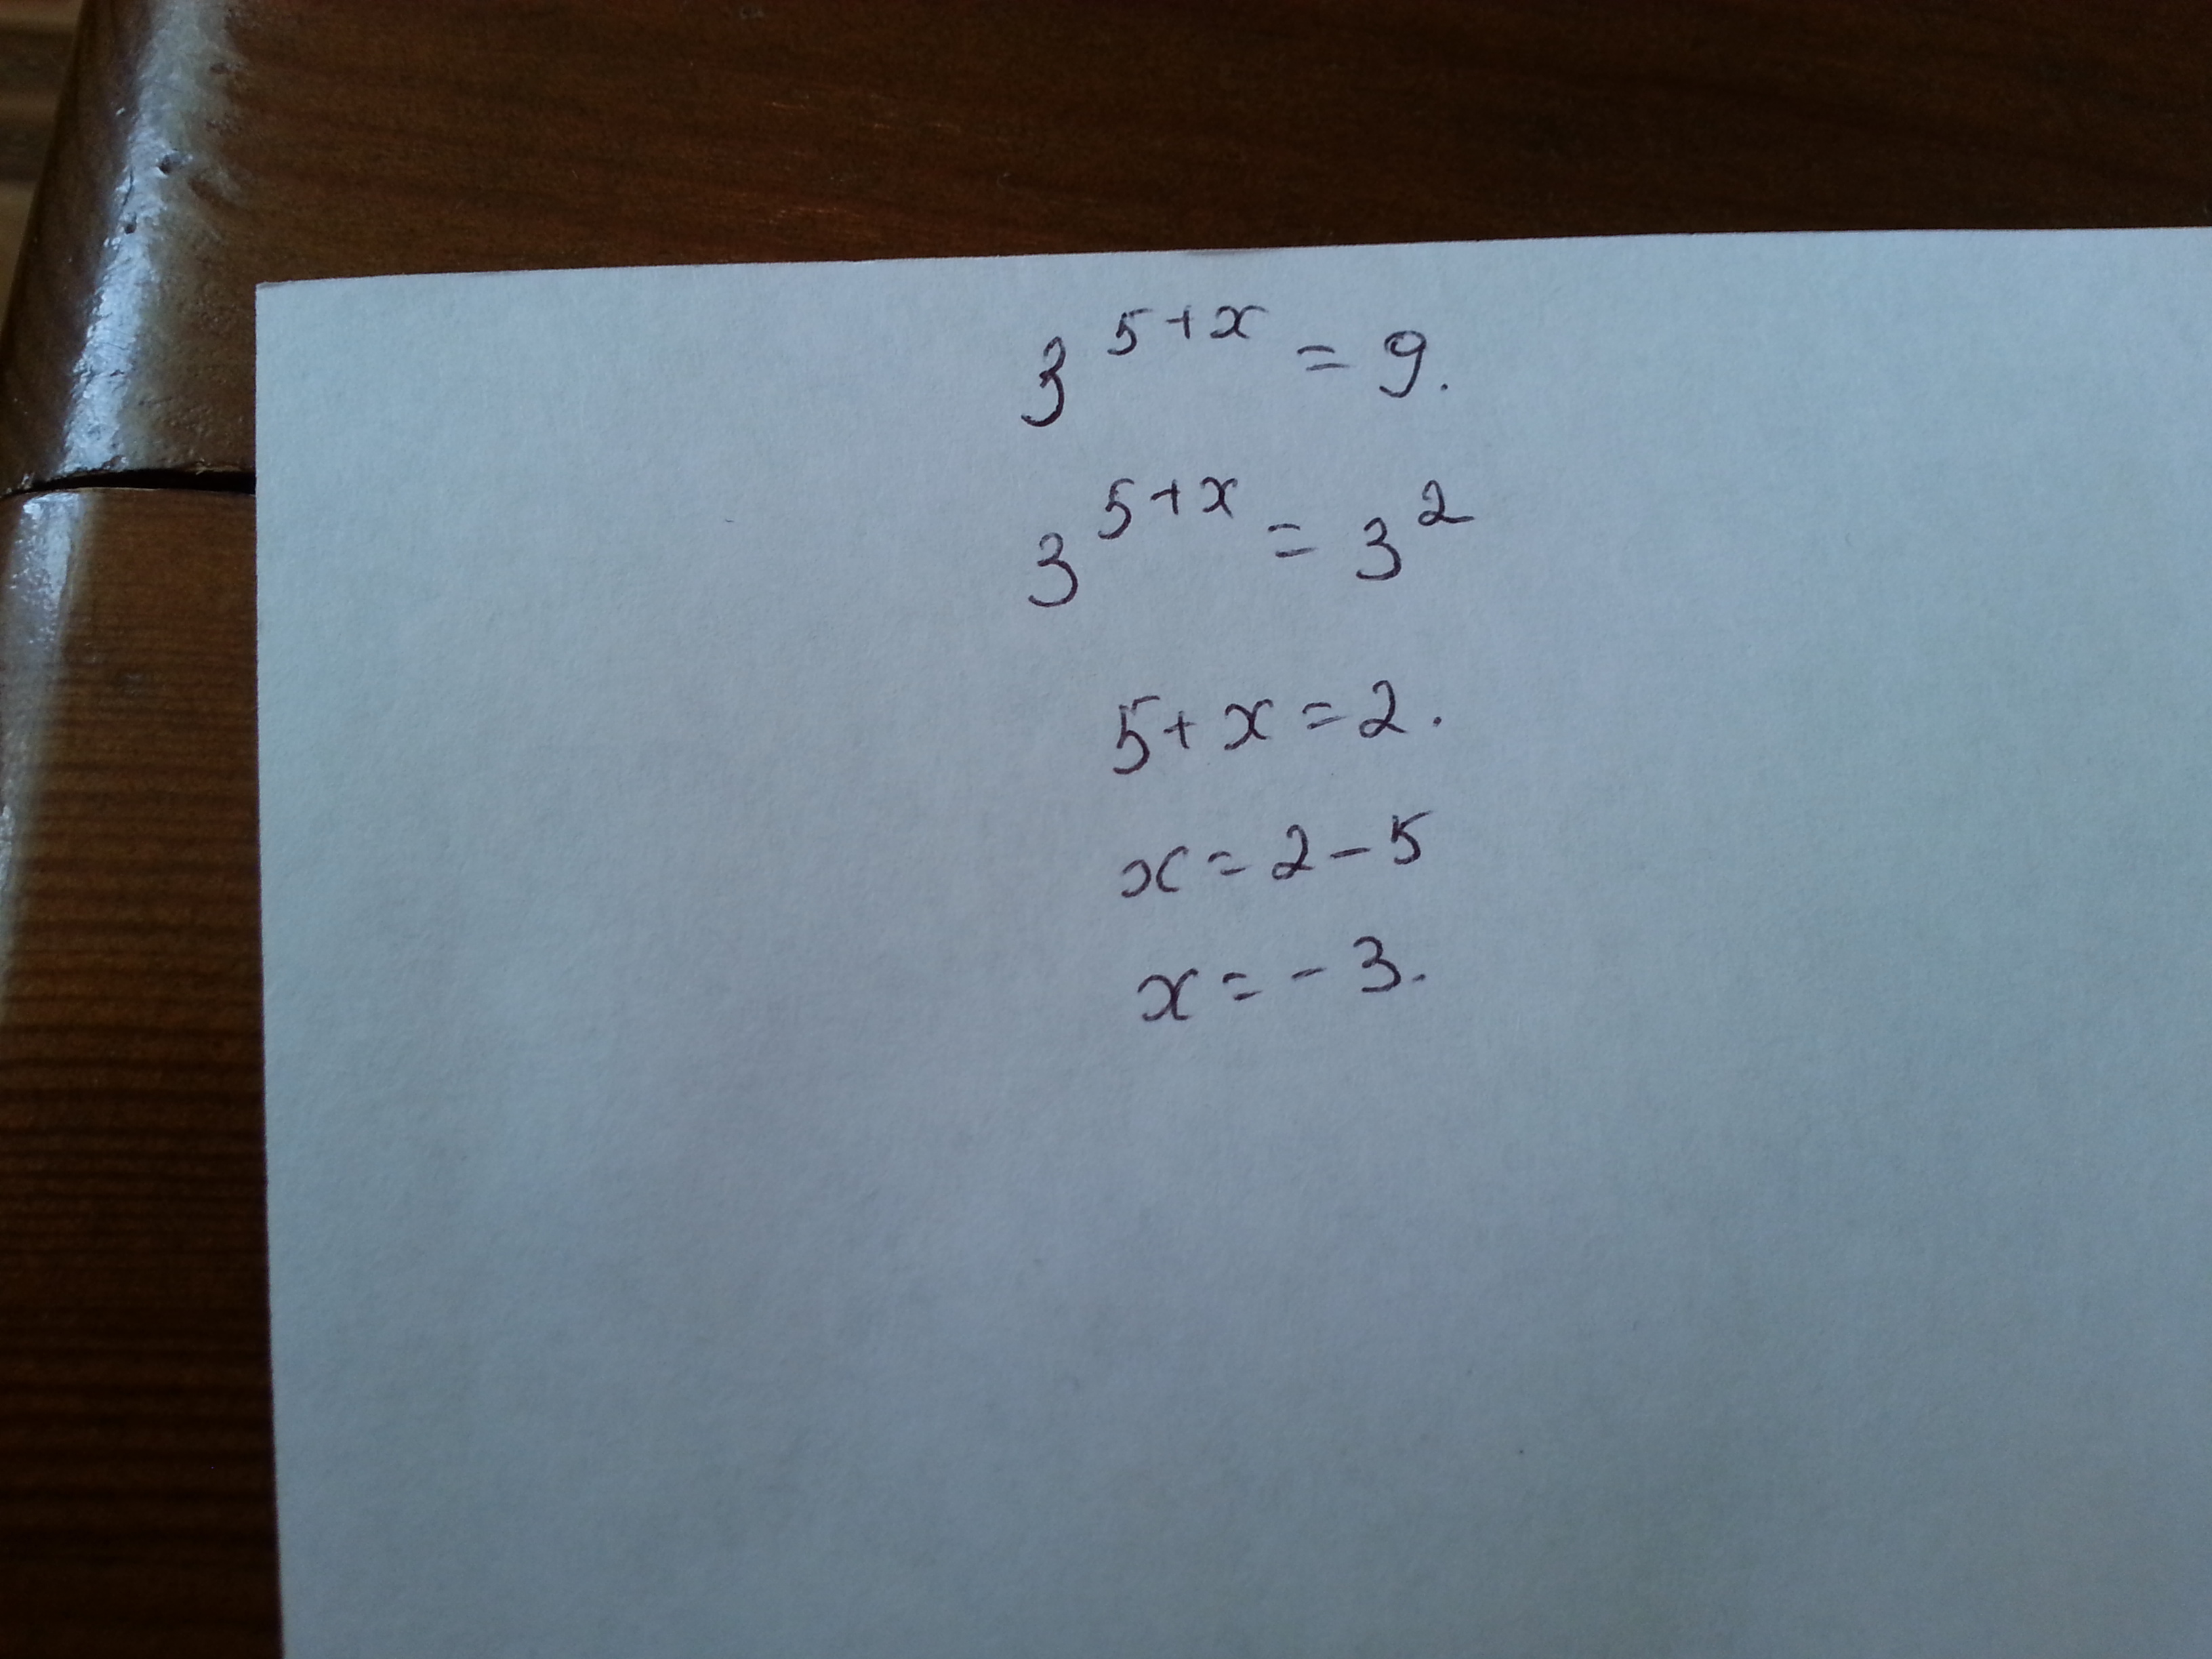 3^{5+x} = 9.
3^{5+x} = 3^2
5+x=2.
x=2-5
x=-3.